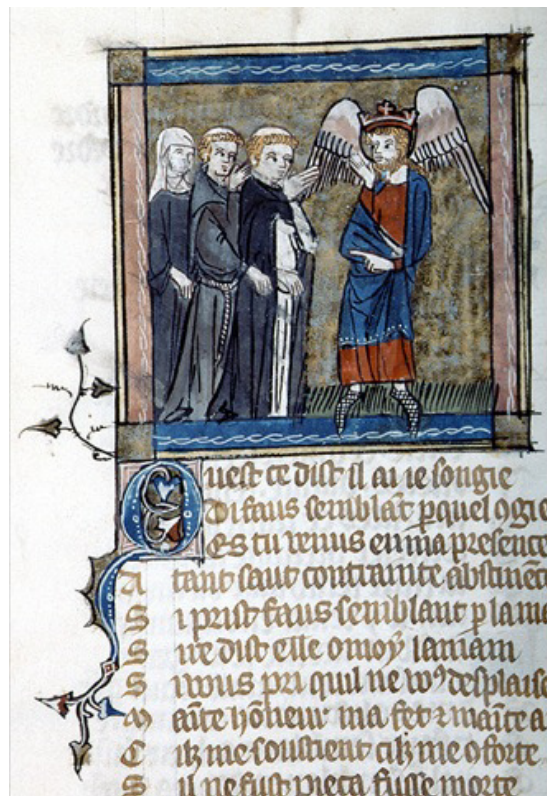 Quest ce dist il ai ie songie
Di faus semblāt ꝑ quel ꝯgie
Es tu venus en ma presence
A tant saut contrainte abstinēc
S i prist faus semblant ꝑ la ma
S ire dist elle o moy lamain
S i vous pri quil ne wꝰ desplaise
M ainte hōneur ma fet ⁊ maīte a
C ilz me soustient cilz me ꝯforte
S il ne fust pieca fusse morte